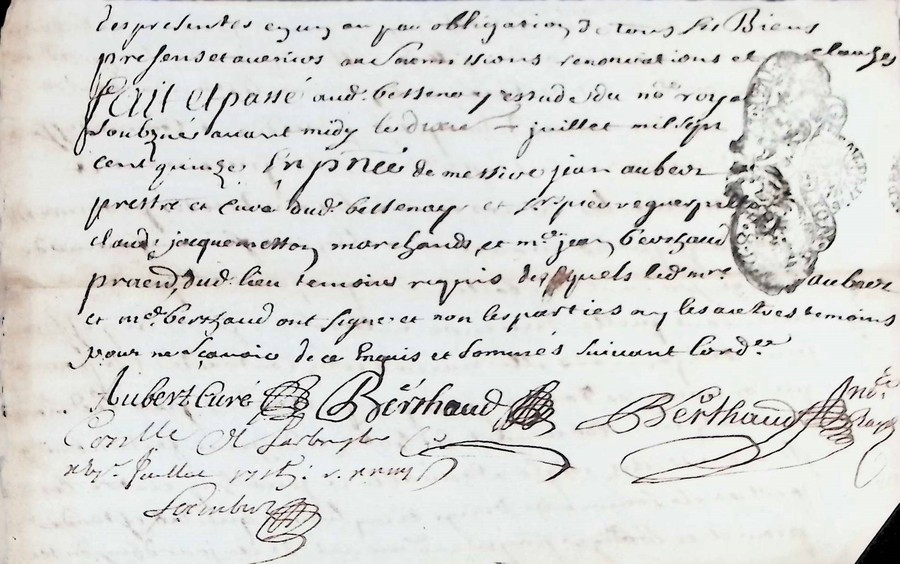 les presentes par obligation de tous ses Biens
presens et avenirs aux soumissions renonciations et clauzes
fait et passé aud. bessenay estude du no.re royal
soubzné avant midy le juillet mil sept
cent quinze En pnce de messire jean aubert
prestre et curé dud. bessenay et Sr. pierre
claude jacquemetton marchands, et me. jean berthaud
praticien dud. lieu temoins requis desquels led. mre. aubert
et me. berthaud ont signé et non les parties ny les autres temoins
pour ne sçavoir de ce Enquis et sommés suivant lord.ce
Aubert Curé Berthaud Berthaud no.re
Con.lle A
juillet 1715